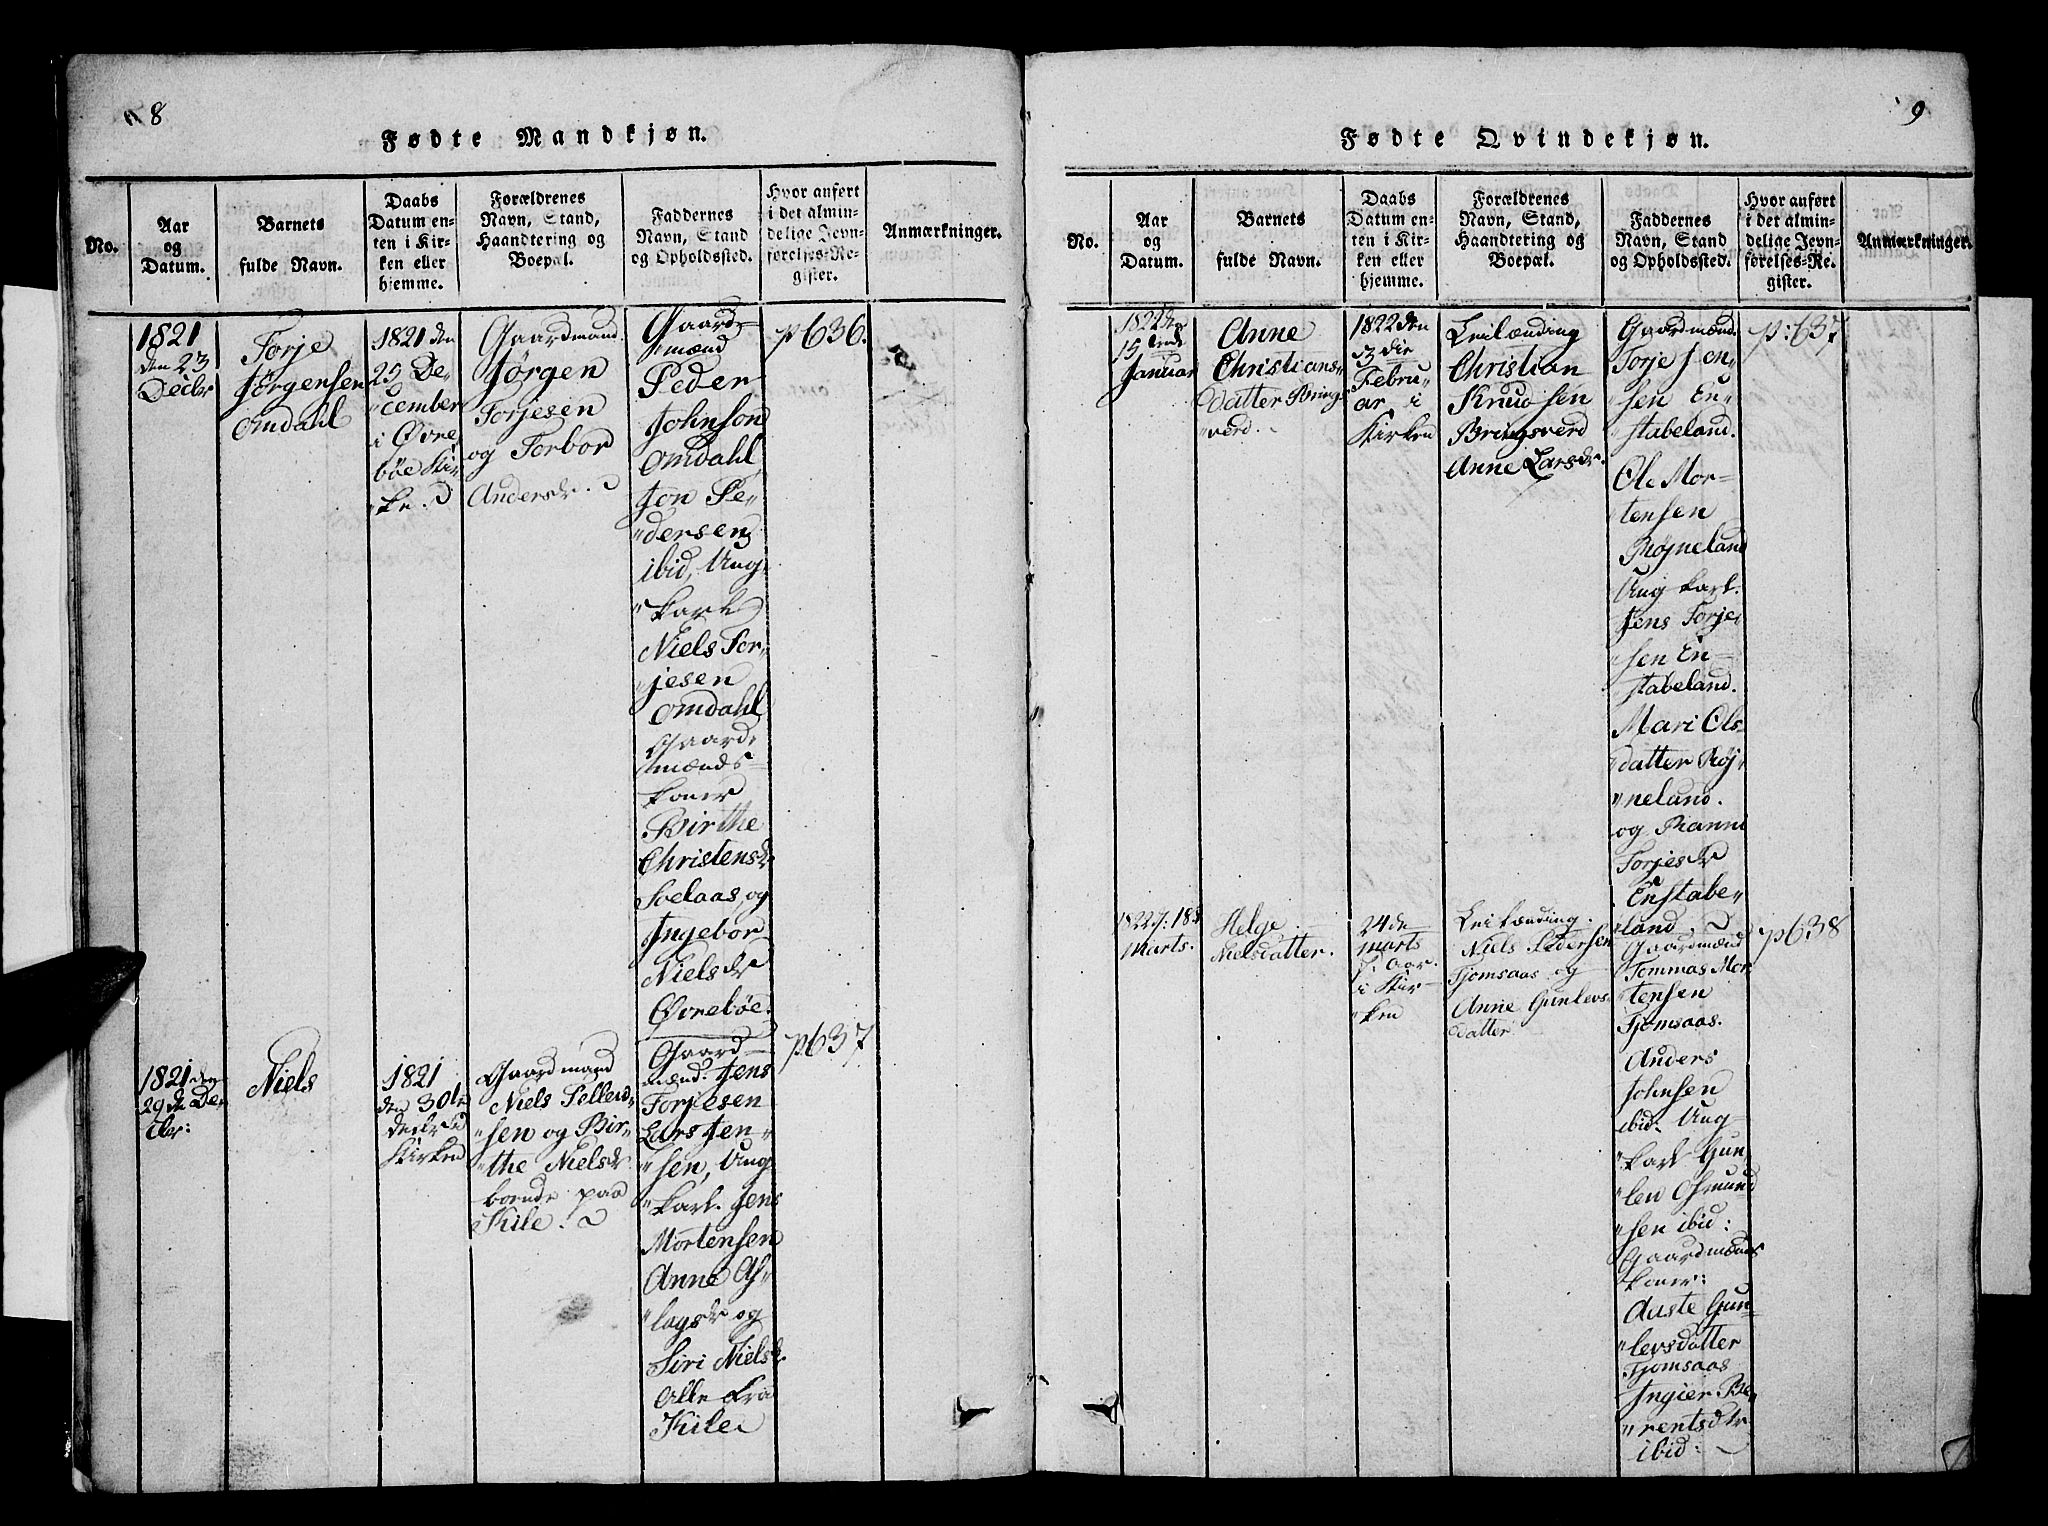 8
Fødte Mandkjøn.
No.
Aar
og
Datum.
Barnets
fulde Navn.
Daabs
Datum en-
ten i Kir-
ken eller
hjemme.
Forældrenes
Navn, Stand,
Haandtering og
Boepæl.
Faddernes
Navn, Stand
og Opholdssted.
Hvor anført
i det almin-
delige Jevn-
førelses-Re-
gister.
Anmærkninger.
1821
den 23
Decbr
Torje
Jörgensen
Omdahl
1821 den
25 De-
"cember
i Øvre
bøe Kir-
"ke.
Gaardmand
Jørgen
Torjesen
og Torbor
Andersdr.
Gaard-
mænd
Peder
Johnson
Omdahl
Jon Pe-
"dersen
ibid, Ung-
"karl
Niels Tor-
"jesen
Omdahl
Gaard-
mænds-
koner
Birthe
Christensdr
Soelaas, og
Ingebor
Nielsdr
Øvrebøe.
p 636.
1821 den
29de De-
cbr:
Niels
1821
den 30te
decbr i
Kirken
Gaardmand
Niels Pellerd-
"sen og Bir-
"the Nielsdr
boende paa
Kile.
Gaard-
mænd: Jens
Torjesen
Lars Jen-
"sen, Ung-
"karl. Jens
Mortensen
Anne As-
"lagsdr og
Siri Nielsdr.
Alle fra
Kile
p 637
9
Fødte Qvindekjøn.
No.
Aar
og
Datum.
Barnets
fulde Navn.
Daabs
Datum en-
ten i Kir-
ken eller
hjemme.
Forældrenes
Navn, Stand,
Haandtering og
Boepæl.
Faddernes
Navn, Stand
og Opholdssted.
Hvor anført
i det almin-
delige Jevn-
førelses-Re-
gister.
Anmærkninger.
1822 den
15 ende
Januar
Anne
Christians-
datter Brings-
"verd.
1822 den
3die
Febru-
ar i
Kirken
Leilænding
Christian
Knudsen
Bringsverd
Anne Larsdr.
Gaardmænd
Torje Jen-
"sen En-
"stabeland.
Ole Mor-
"tensen
Røjneland
Ung karl.
Jens Torje-
"sen En-
stabeland.
Mari Ols-
"datter Røj-
"neland.
og Ranni
Torjesdr
Enstabe-
"land
p: 637
1822 d: 18d
Marts.
Helge
Nielsdatter.
24de
Marts
s. Aar.
i Kir-
"ken
Leilænding
Niels Pedersen
Tjomsaas og
Anne Gunlevs-
datter
Gaardmænd
Tommas Mor-
"tensen
Tjomsaas.
Anders
Johnsen
ibid. Ung-
"karl Gun-
"len Osmund-
"sen ibid:
Gaardmænds
koner:
Aaste Gun-
"levsdatter
Tjomsaas
Ingier Be-
"rentsdtr
ibid:
p 638